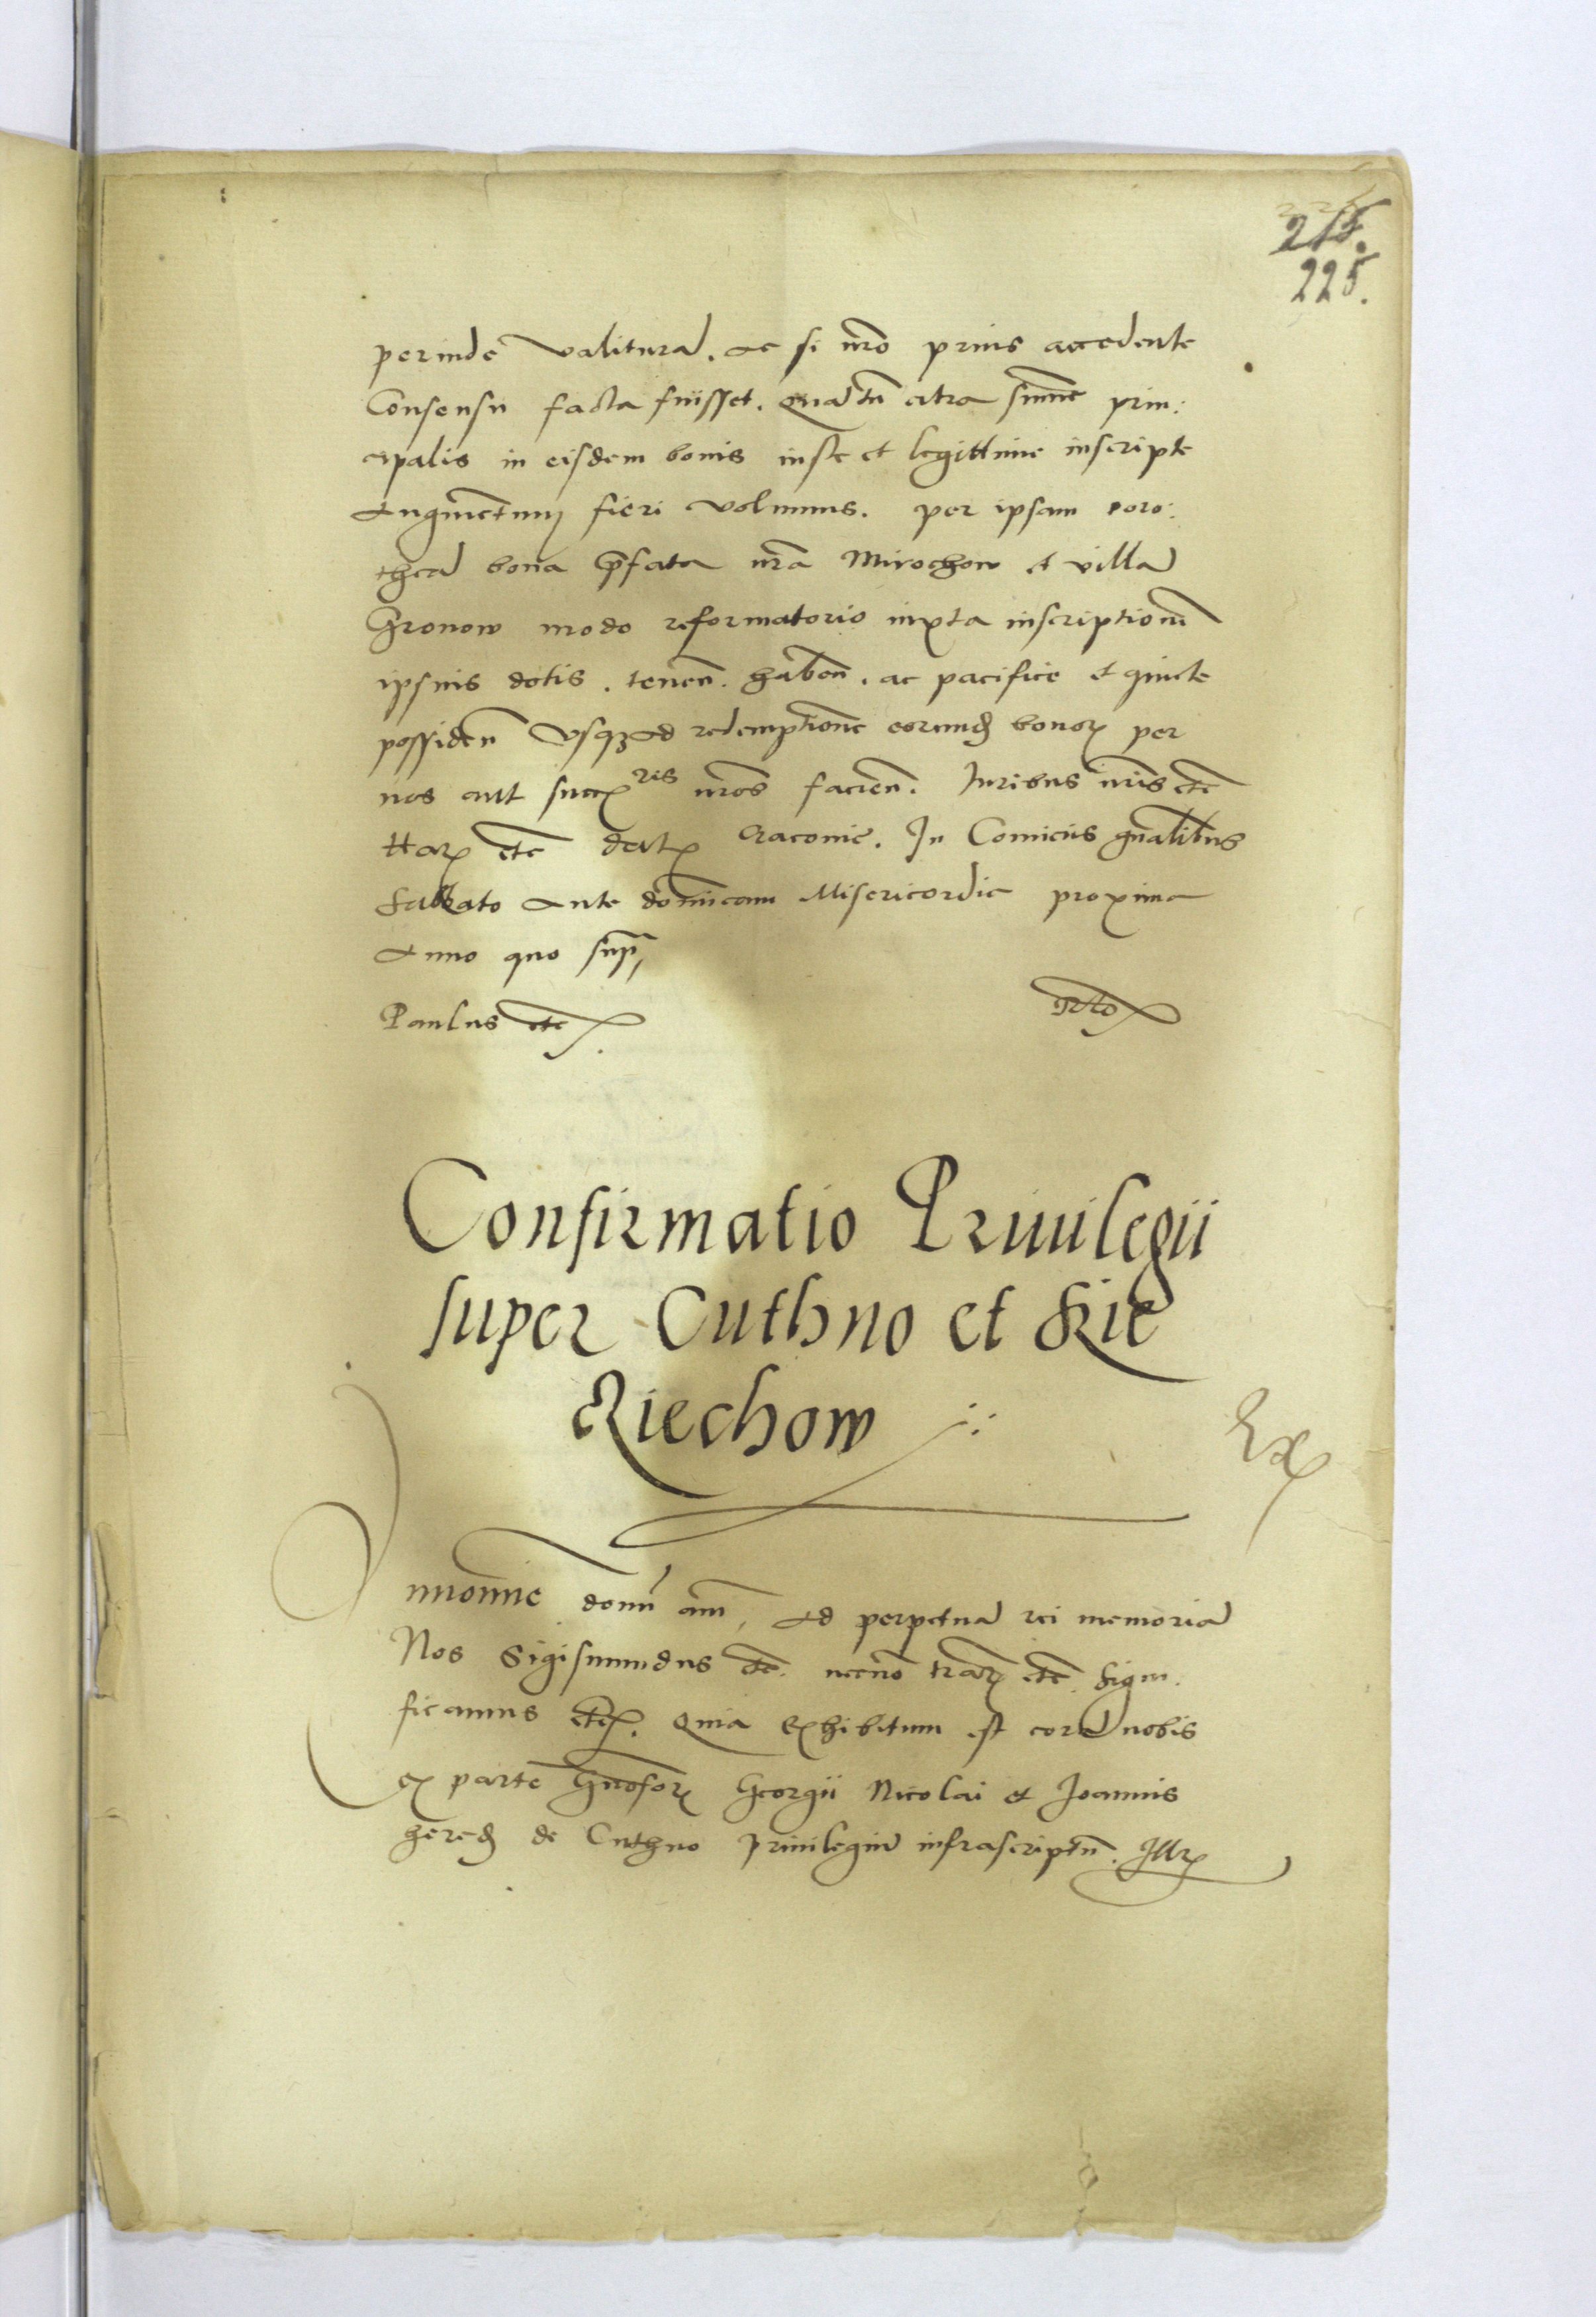 215.
225.
perinde valitura. ac si nro prius accedente
Consensu facta fuisset. quantu citra summe prin:
cipalis in eisdem bonis iuste et legittime inscripte
augmentum fieri volumus. per ipsam Doro:
thea bona prefata nra Mirochow et villa
Gronow modo reformatorio iuxta inscriptionem
ipsius dotis. tenen. haben. ac pacifice et quiete
possiden vsqz ad redemptione eorund bonorum per
nos aut succris nros facien. Iuribus nris etc
Harum etc Datum Cracouie. In Comiciis gnalibus
Sabbato ante dominicam Misericordie proxima
Anno quo sup,
Paulus etc
Rto
Confirmatio Priuilegii
super Cuthno et Sie
Riechow
Ex
In nomine domini am, ad perpetua rei memoria
Nos Sigismundus etc. necno harum etc. Signi:
ficamus etc. Quia exhibitum est cora nobis
ex parte Gnosorum Georgii Nicolai et Joannis
hered de Cuthno Priuilegium infrascriptu.